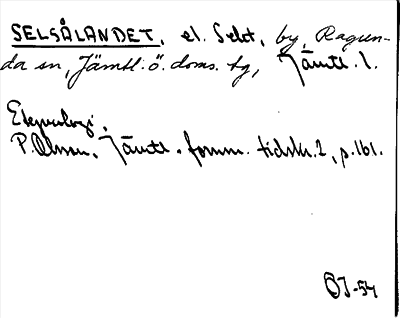 SELSÅLANDET, el. Selet, by, Ragun-
da sn, Jämtl: ö. doms. tg, Jämtl. l.
Etymologi,
P. Olsson, Jämtl. fornm. tidskr. 2, p. 161.
ÖJ-54